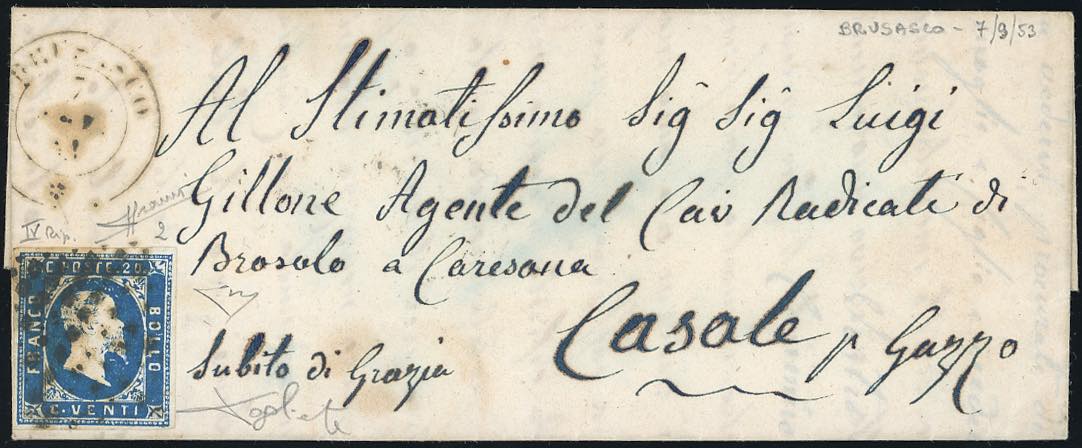 BRUSASCO - 7/9/53
Al Stimatissimo Sig Sig Luigi
Gillone Agente del Cav Radicati di
Brosolo a Caresana
Casale p Gazzo
Subito di Grazia
IV Rip.
2
C. POSTE. 20
FRANCO
BOLLO
C. VENTI